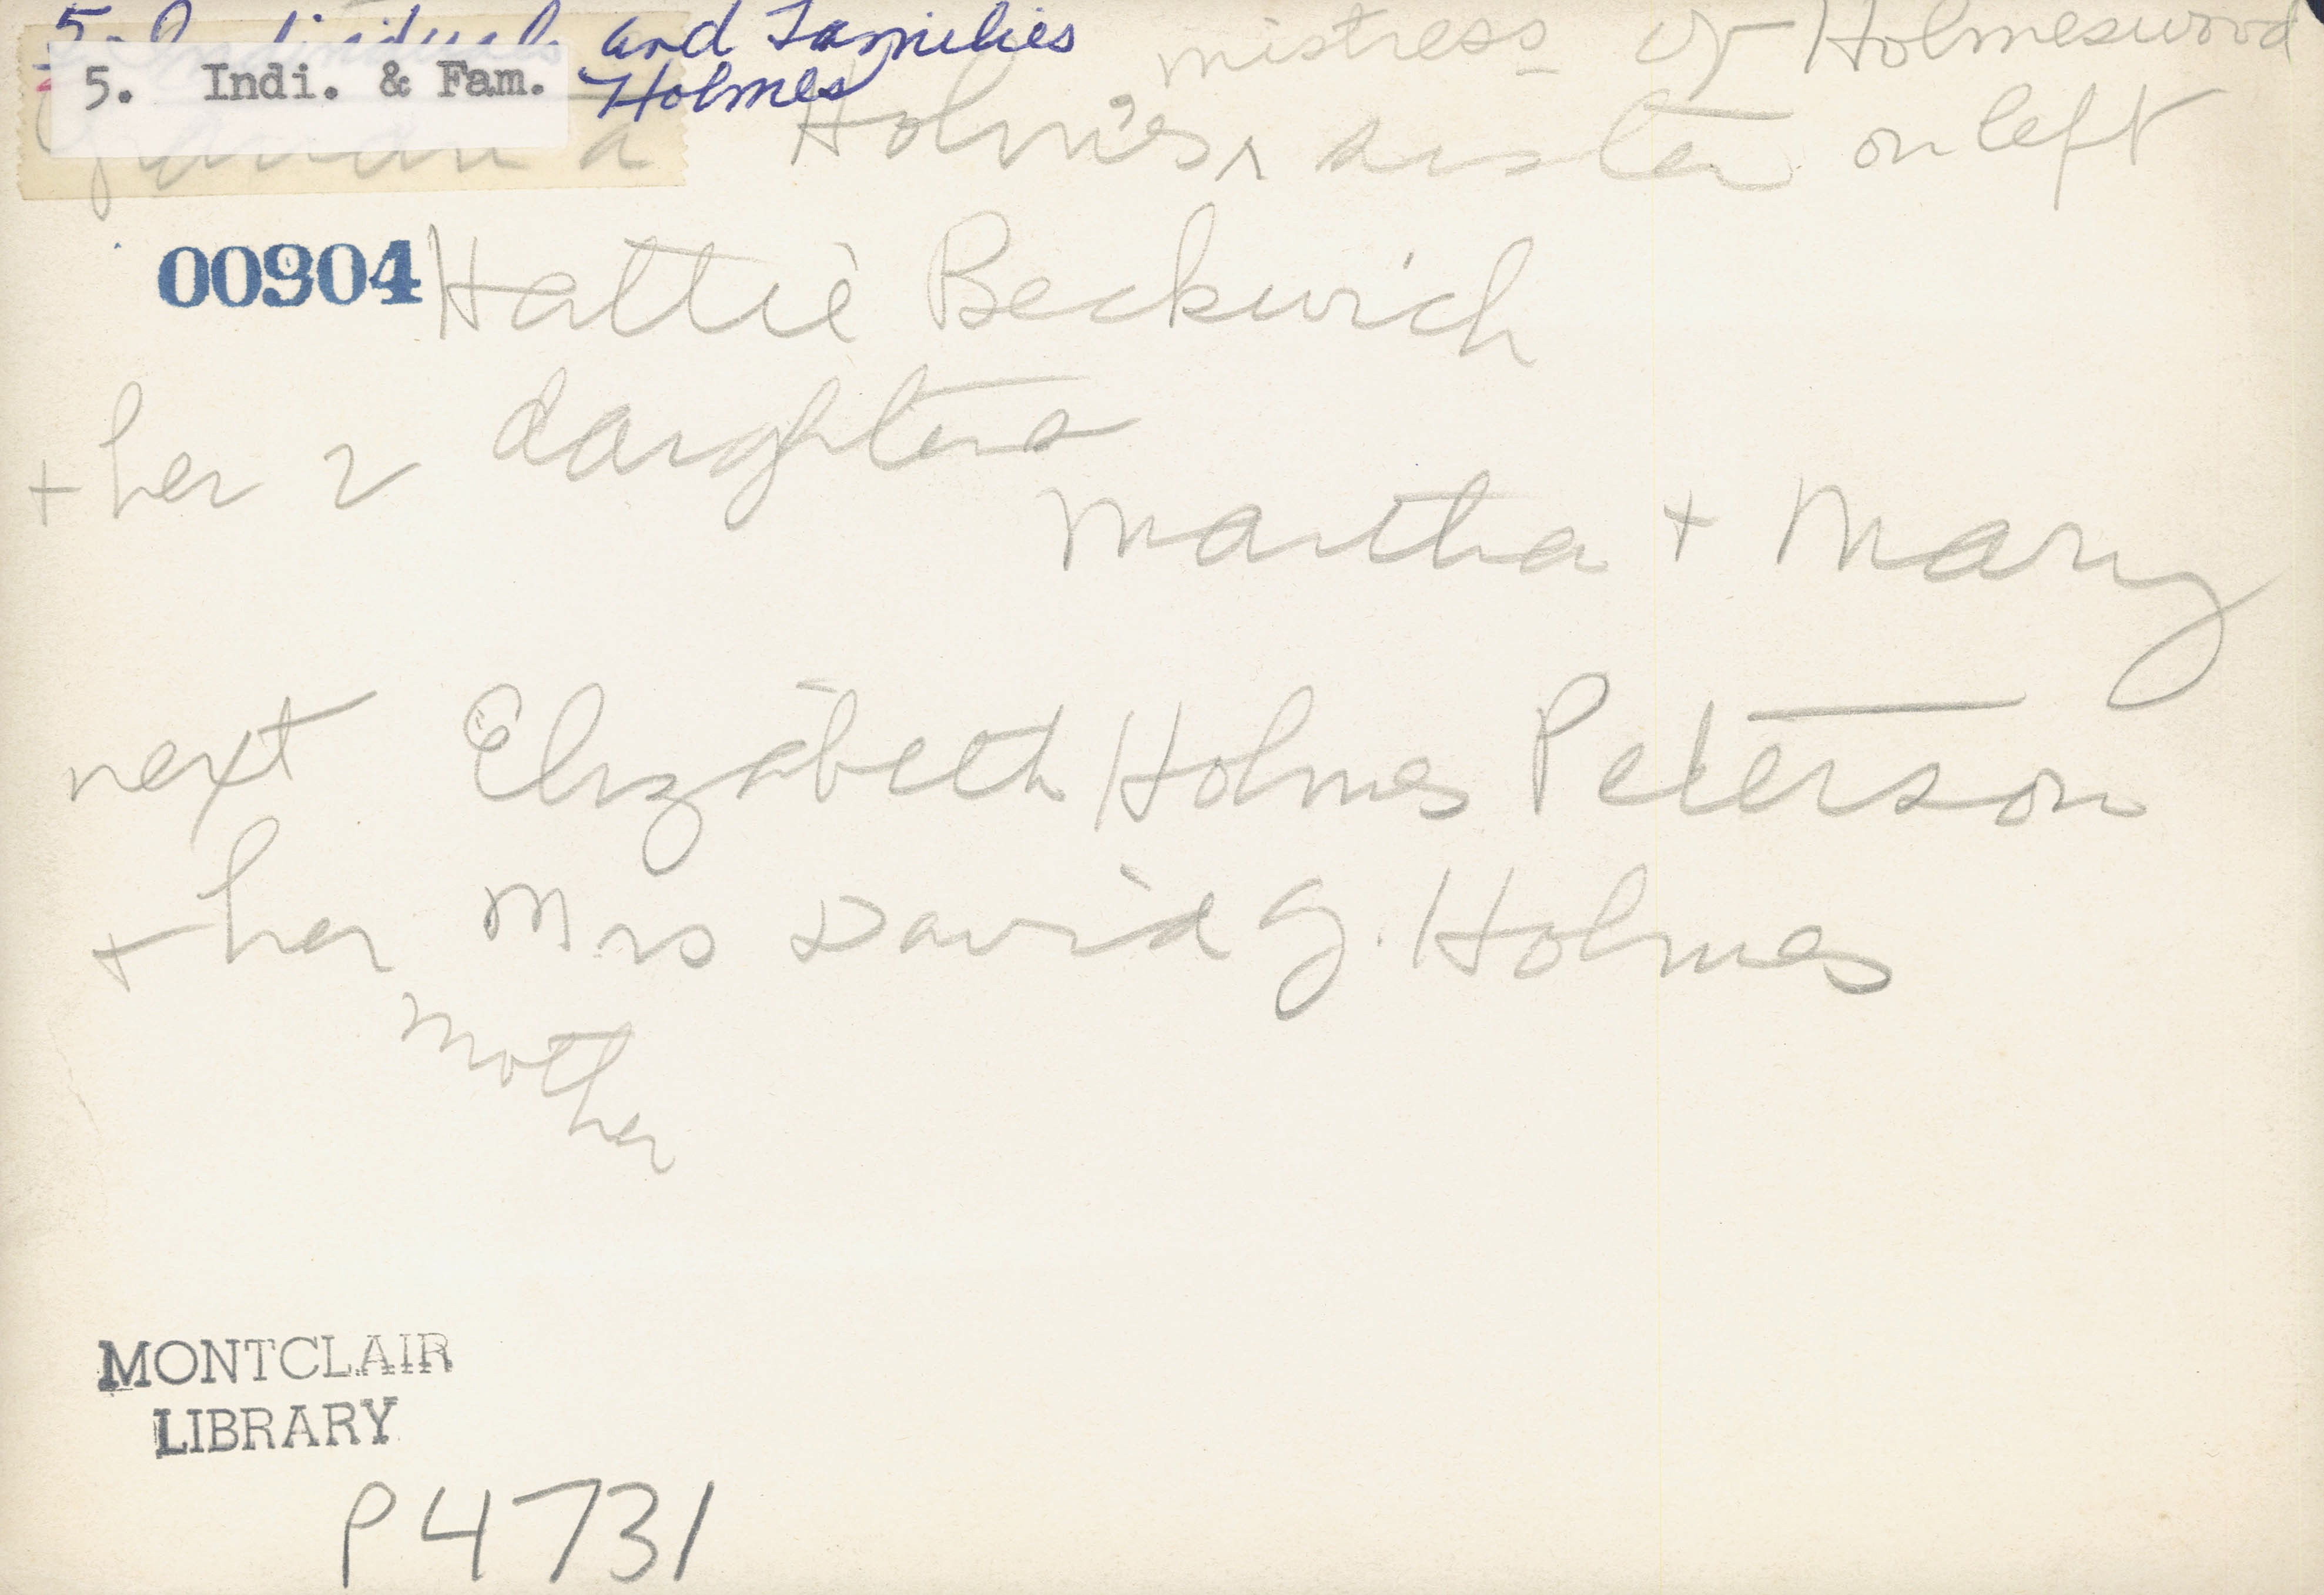 5. Individuals and Families
5. Indi. & Fam.
Holmes
mistress of Holmeswood
Grandma Holmes's sister on left
00904
Hattie Beckwich
+ her 2 daughters
Martha + Mary
next Elizabeth Holmes Peterson
+ her Mrs David G. Holmes
mother
MONTCLAIR
LIBRARY
P4731